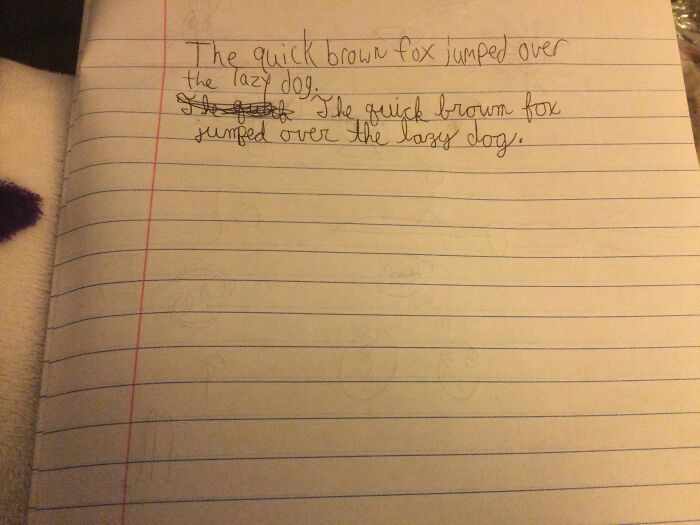 The quick brown fox jumped over
the lazy dog.
The quick brown fox
jumped over the lazy dog.